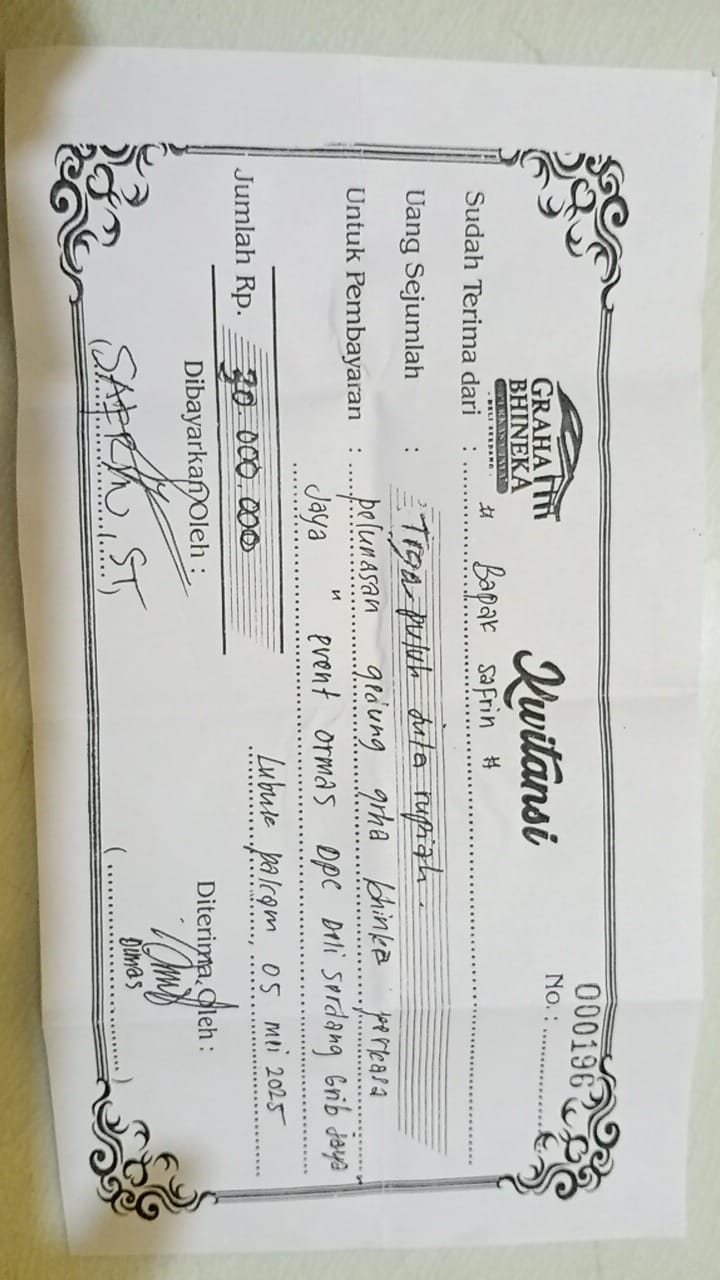 000196
No. :
GRAHA
BHINEKA
PERKASA JAYA
DELI SERDANG
Kwitansi
Sudah Terima dari : # Bapak Safrin #
Uang Sejumlah : Tiga puluh juta rupiah.
Untuk Pembayaran : pelunasan gedung grha bhinka perkasa
Jaya " event ormas DPC Deli Serdang Grib Jaya "
Jumlah Rp. 30.000.000
Lubuk pakam, 05 mei 2025
Dibayarkan Oleh :
Diterima Oleh :
(SAFRIN, ST)
Dimas